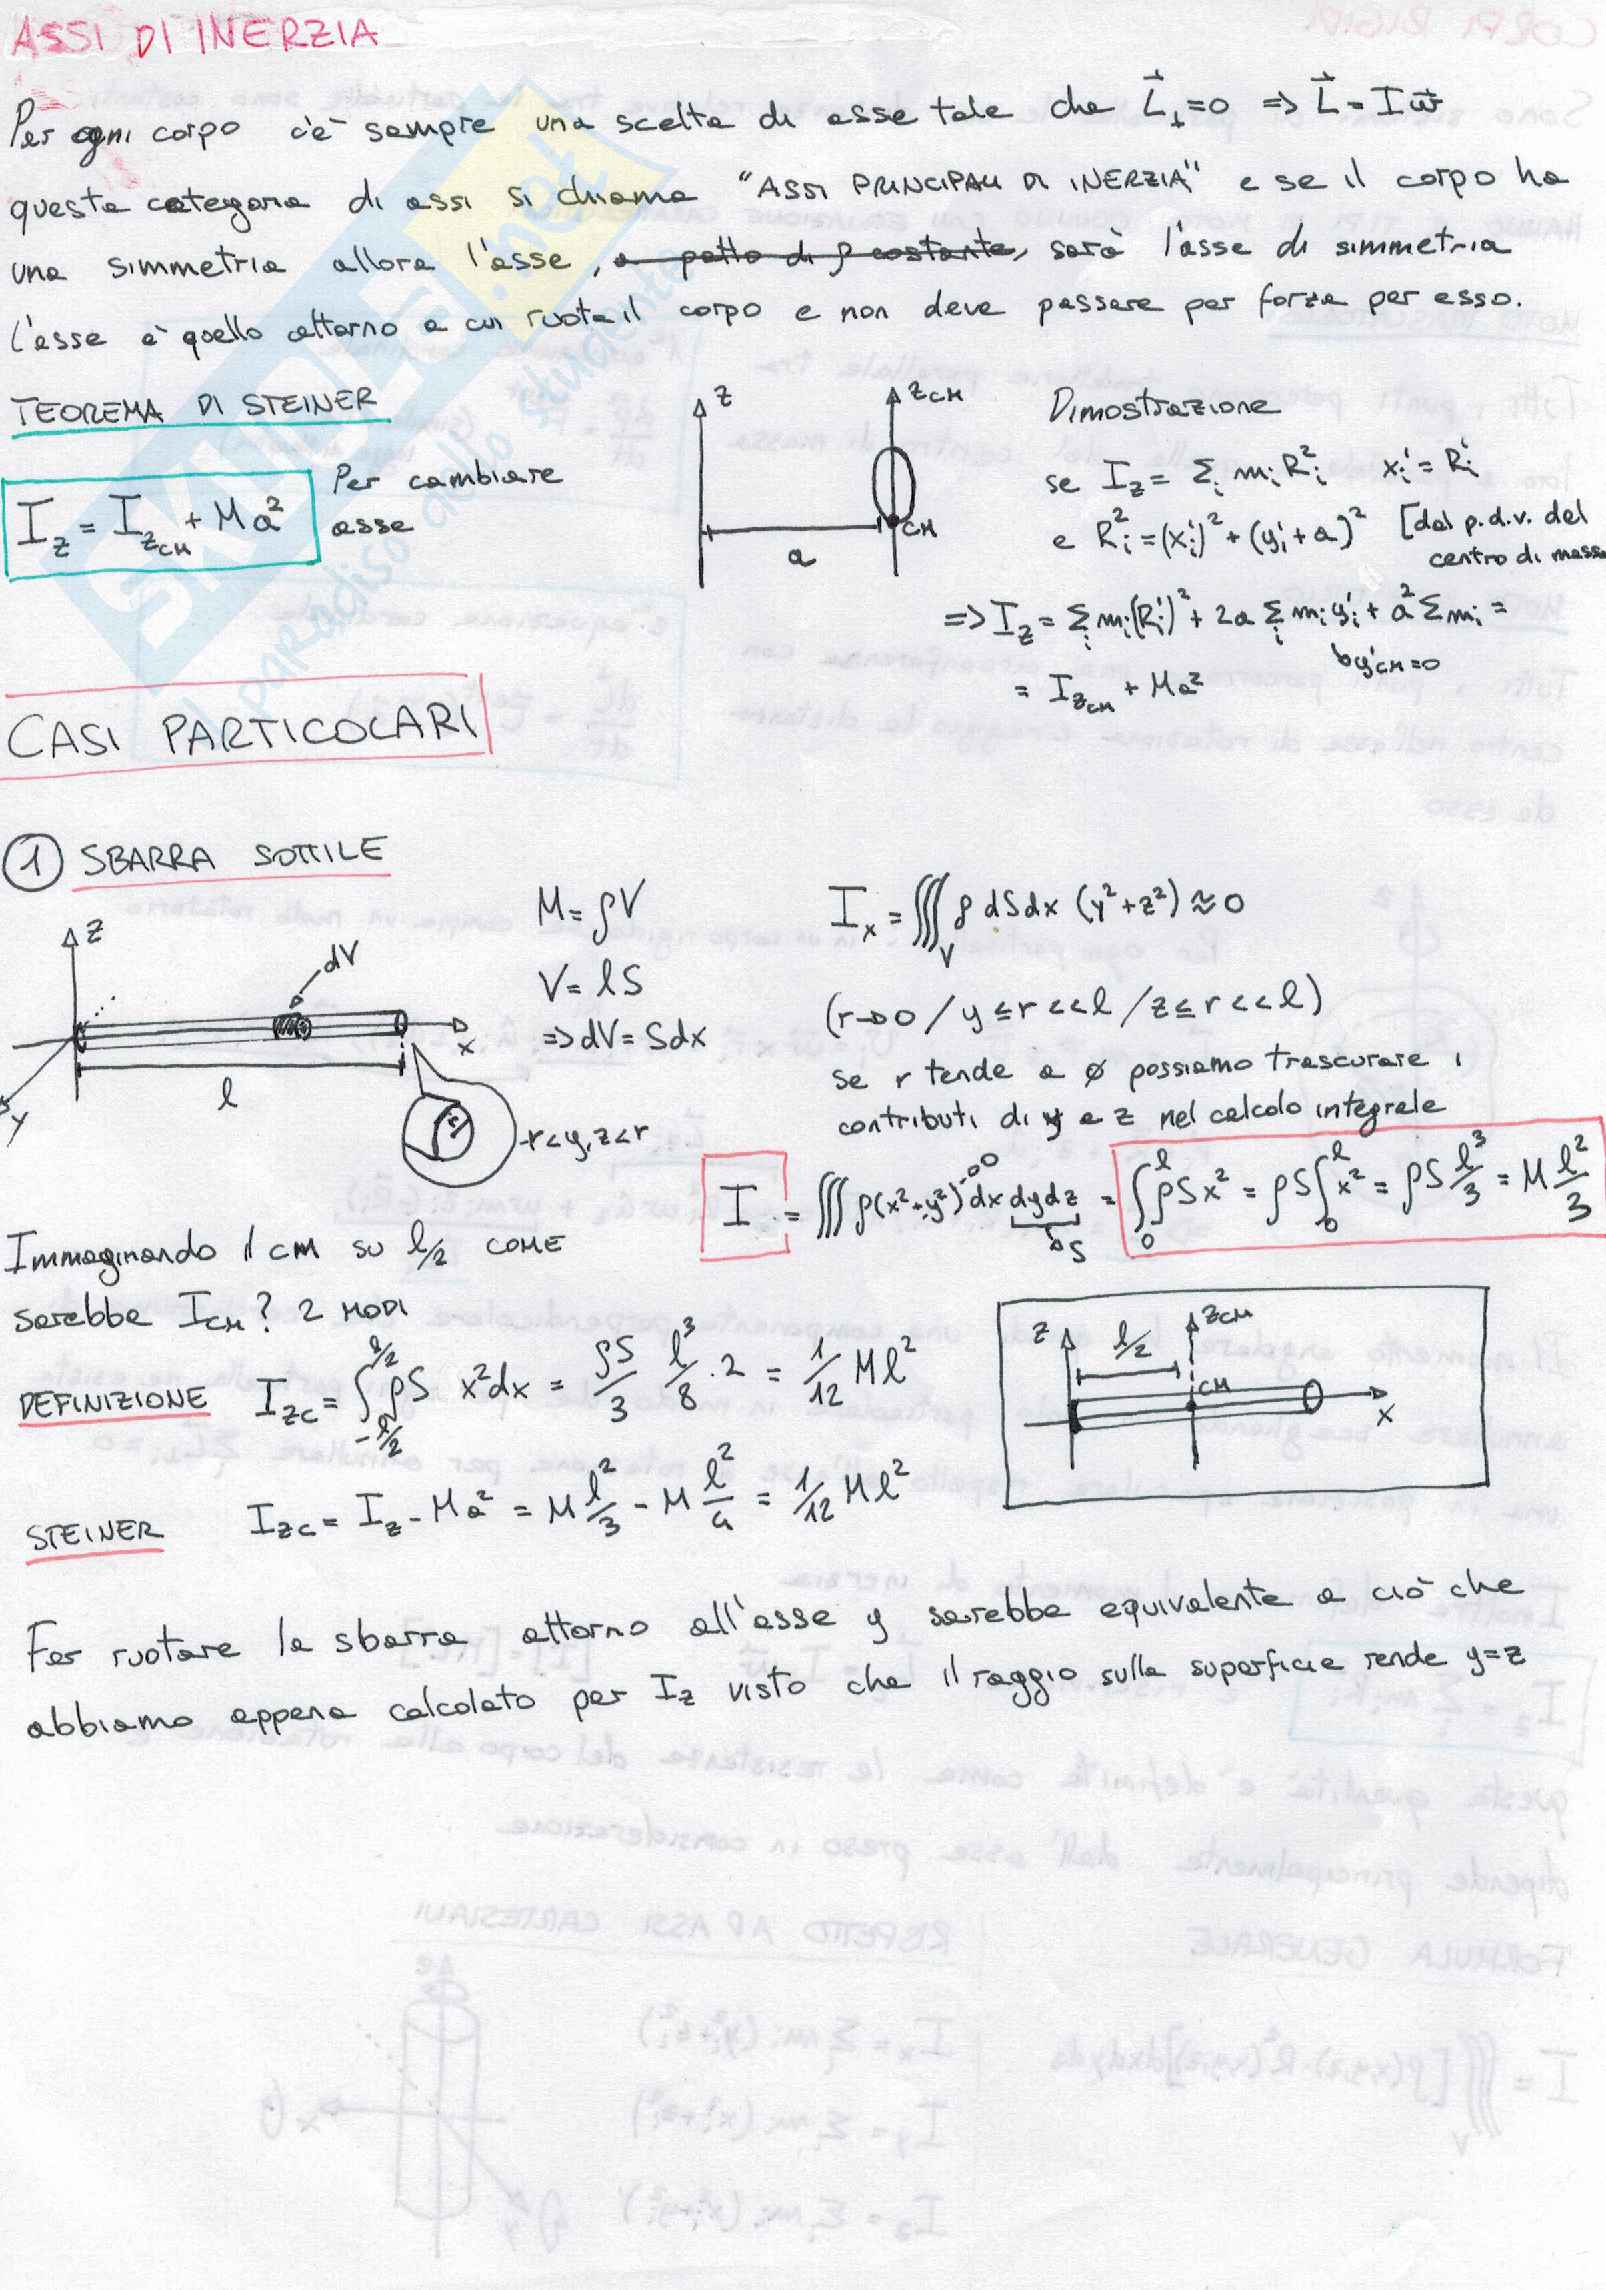 ASSI DI INERZIA
Per ogni corpo c'è sempre una scelta di asse tale che L⃗⊥=0 => L⃗ = Iω⃗
questa categoria di assi si chiama "ASSI PRINCIPALI DI INERZIA" e se il corpo ha
una simmetria allora l'asse, a patto di ρ costante, sarà l'asse di simmetria
L'asse è quello attorno a cui ruota il corpo e non deve passare per forza per esso.
TEOREMA DI STEINER
I_z = I_zCM + Ma²
Per cambiare
asse
z
zCM
CM
a
Dimostrazione
se I_z = Σ_i m_i R_i² x_i' = R_i'
e R_i² = (x_i')² + (y_i' + a)² [dal p.d.v. del
centro di massa
=> I_z = Σ_i m_i (R_i')² + 2a Σ_i m_i y_i' + a² Σ m_i =
↳ y'CM = 0
= I_zCM + Ma²
CASI PARTICOLARI
① SBARRA SOTTILE
z
dV
x
y
l
r
-r<y,z<r
M = ρV
V = lS
=> dV = Sdx
I_x = ∭_V ρ dS dx (y²+z²) ≈ 0
(r→0 / y ≤ r << l / z ≤ r << l)
se r tende a ø possiamo trascurare i
contributi di y e z nel calcolo integrale
I = ∭ ρ(x²+y²)→0 dx dydz = ∫_0^l ρSx² = ρS ∫_0^l x² = ρS l³/3 = M l²/3
→ S
Immaginando il CM su l/2 COME
sarebbe I_CM? 2 MODI
DEFINIZIONE I_zc = ∫_{-l/2}^{l/2} ρS x²dx = ρS/3 l³/8 · 2 = 1/12 Ml²
STEINER I_zc = I_z - Ma² = M l²/3 - M l²/4 = 1/12 Ml²
z
l/2
zCM
CM
x
Far ruotare la sbarra attorno all'asse y sarebbe equivalente a ciò che
abbiamo appena calcolato per I_z visto che il raggio sulla superficie rende y=z
SKUOLA.net
il paradiso dello studente